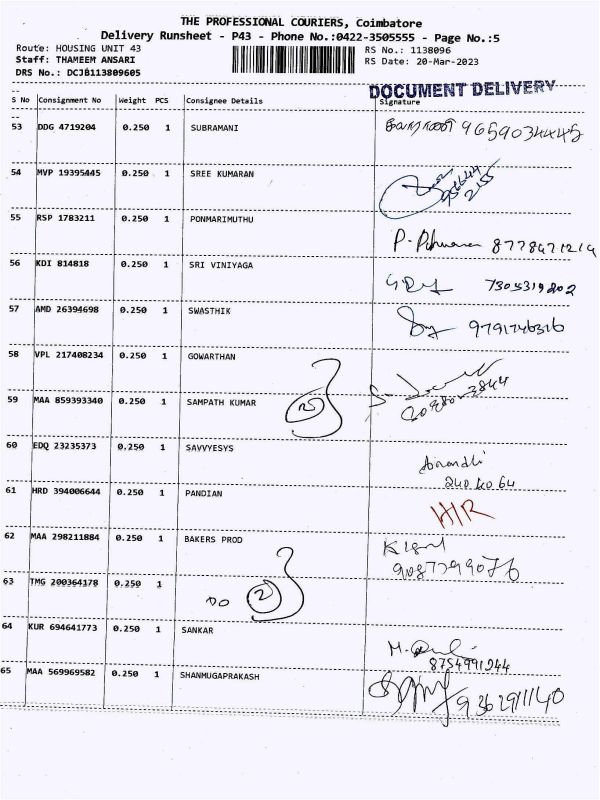 THE PROFESSIONAL COURIERS, Coimbatore
Delivery Runsheet - P43 - Phone No.:0422-3505555 - Page No.:5
Route: HOUSING UNIT 43 RS No.: 1138096
Staff: THAMEEM ANSARI RS Date: 20-Mar-2023
DRS No.: DCJB113809605
DOCUMENT DELIVERY
S No Consignment No Weight PCS Consignee Details Signature
53 DDG 4719204 0.250 1 SUBRAMANI 9659034445
54 MVP 19395445 0.250 1 SREE KUMARAN
55 RSP 1783211 0.250 1 PONMARIMUTHU 8778471214
56 KDI 814818 0.250 1 SRI VINIYAGA 7305319802
57 AMD 26394698 0.250 1 SWASTHIK 9791746316
58 VPL 217408234 0.250 1 GOWARTHAN
59 MAA 859393340 0.250 1 SAMPATH KUMAR 2
60 EDQ 23235373 0.250 1 SAVVYESYS
240 4064
61 HRD 394006644 0.250 1 PANDIAN H/R
62 MAA 298211884 0.250 1 BAKERS PROD
9087799076
63 TMG 200364178 0.250 1 DO 2
64 KUR 694641773 0.250 1 SANKAR
8754991944
65 MAA 569969582 0.250 1 SHANMUGAPRAKASH 9362911140